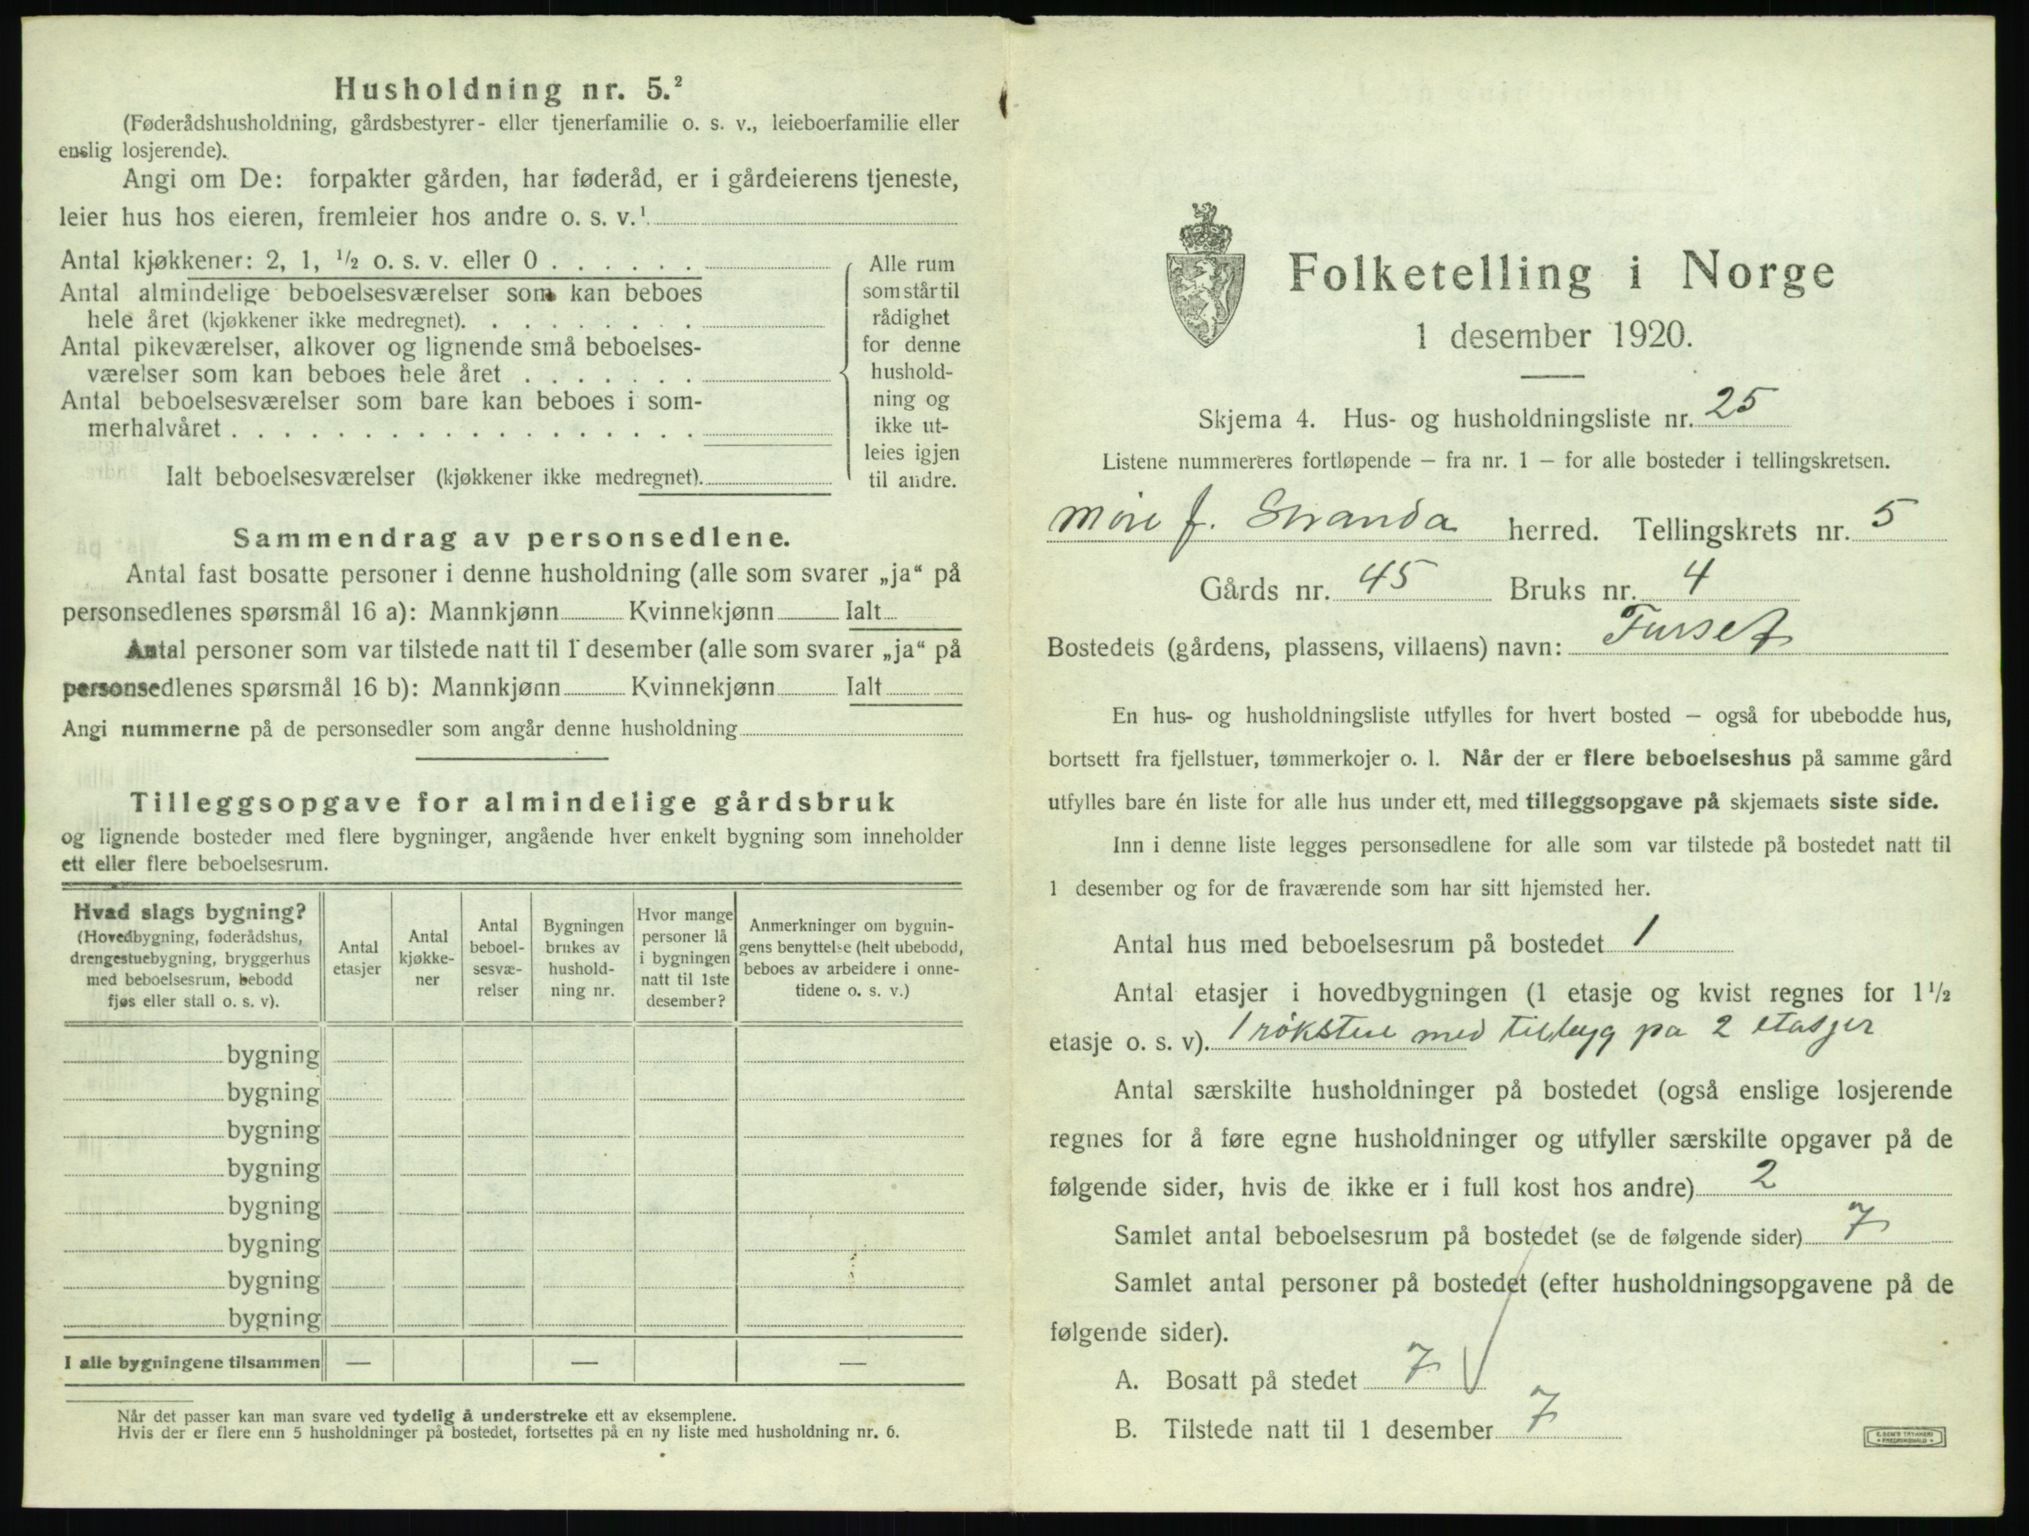 Husholdning nr. 5.²
(Føderådshusholdning, gårdsbestyrer- eller tjenerfamilie o. s. v., leieboerfamilie eller
enslig losjerende).
Angi om De: forpakter gården, har føderåd, er i gårdeierens tjeneste,
leier hus hos eieren, fremleier hos andre o. s. v.¹
Antal kjøkkener: 2, 1, ½ o. s. v. eller 0 . . . . . .
Antal almindelige beboelsesværelser som kan beboes
hele året (kjøkkener ikke medregnet). . . . . . . . .
Antal pikeværelser, alkover og lignende små beboelses-
værelser som kan beboes hele året . . . . . . .
Antal beboelsesværelser som bare kan beboes i som-
merhalvåret . . . . . . . . . . . . . . . . . .
Ialt beboelsesværelser (kjøkkener ikke medregnet).
Alle rum
som står til
rådighet
for denne
hushold-
ning og
ikke ut-
leies igjen
til andre.
Sammendrag av personsedlene.
Antal fast bosatte personer i denne husholdning (alle som svarer „ja“ på
personsedlenes spørsmål 16 a): Mannkjønn Kvinnekjønn Ialt
Antal personer som var tilstede natt til 1 desember (alle som svarer „ja“ på
personsedlenes spørsmål 16 b): Mannkjønn Kvinnekjønn Ialt
Angi nummerne på de personsedler som angår denne husholdning
Tilleggsopgave for almindelige gårdsbruk
og lignende bosteder med flere bygninger, angående hver enkelt bygning som inneholder
ett eller flere beboelsesrum.
Hvad slags bygning?
(Hovedbygning, føderådshus,
drengestuebygning, bryggerhus
med beboelsesrum, bebodd
fjøs eller stall o. s. v).
Antal
etasjer
Antal
kjøkke-
ner
Antal
beboel-
sesvæ-
relser
Bygningen
brukes av
hushold-
ning nr.
Hvor mange
personer lå
i bygningen
natt til 1ste
desember?
Anmerkninger om bygnin-
gens benyttelse (helt ubebodd,
beboes av arbeidere i onne-
tidene o. s. v.)
bygning
bygning
bygning
bygning
bygning
bygning
bygning
bygning
I alle bygningene tilsammen — — —
Når det passer kan man svare ved tydelig å understreke ett av eksemplene.
Hvis der er flere enn 5 husholdninger på bostedet, fortsettes på en ny liste med husholdning nr. 6.
Folketelling i Norge
1 desember 1920.
Skjema 4. Hus- og husholdningsliste nr. 25
Listene nummereres fortløpende — fra nr. 1 — for alle bosteder i tellingskretsen.
Møre f. Stranda herred. Tellingskrets nr. 5
Gårds nr. 45 Bruks nr. 4
Bostedets (gårdens, plassens, villaens) navn: Furset
En hus- og husholdningsliste utfylles for hvert bosted — også for ubebodde hus,
bortsett fra fjellstuer, tømmerkojer o. l. Når der er flere beboelseshus på samme gård
utfylles bare én liste for alle hus under ett, med tilleggsopgave på skjemaets siste side.
Inn i denne liste legges personsedlene for alle som var tilstede på bostedet natt til
1 desember og for de fraværende som har sitt hjemsted her.
Antal hus med beboelsesrum på bostedet 1
Antal etasjer i hovedbygningen (1 etasje og kvist regnes for 1½
etasje o. s. v). 1 røkstue med tilbyg pa 2 etasjer
Antal særskilte husholdninger på bostedet (også enslige losjerende
regnes for å føre egne husholdninger og utfyller særskilte opgaver på de
følgende sider, hvis de ikke er i full kost hos andre) 2
Samlet antal beboelsesrum på bostedet (se de følgende sider) 7
Samlet antal personer på bostedet (efter husholdningsopgavene på de
følgende sider).
A. Bosatt på stedet 7
B. Tilstede natt til 1 desember 7